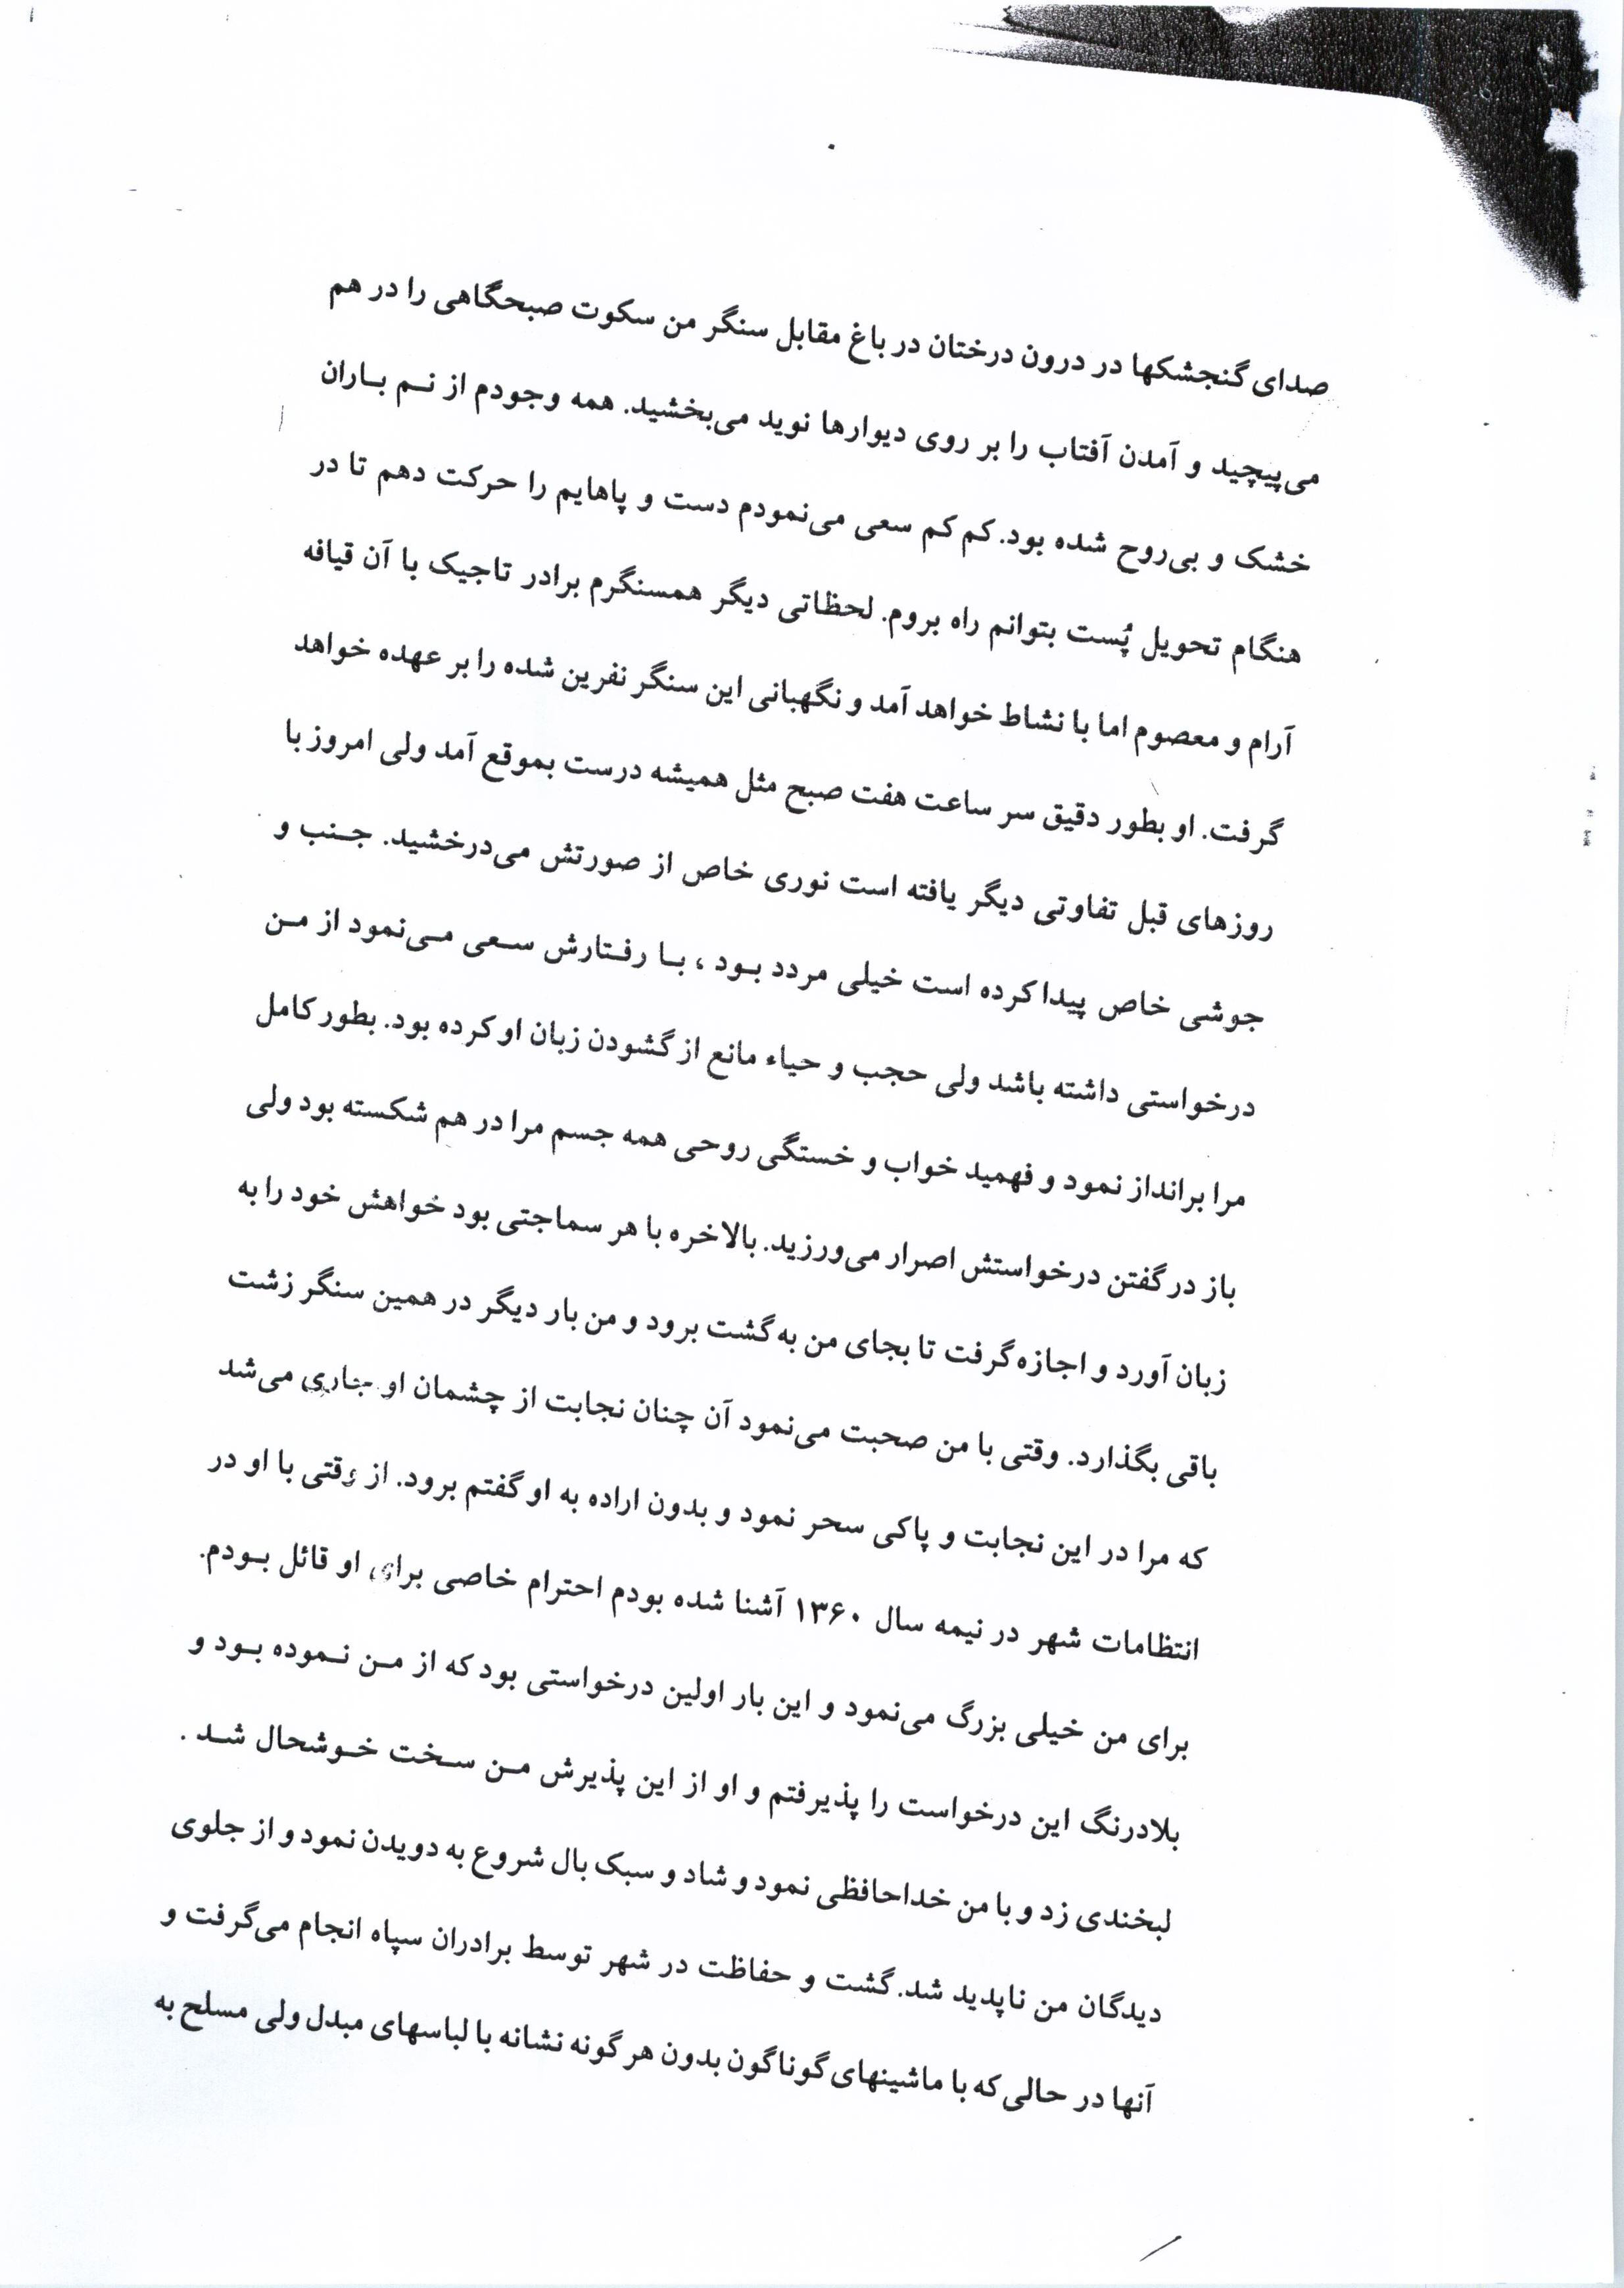 صدای گنجشکها در درون درختان در باغ مقابل سنگر من سکوت صبحگاهی را در هم
می‌پیچید و آمدن آفتاب را بر روی دیوارها نوید می‌بخشید. همه وجودم از نم باران
خشک و بی‌روح شده بود. کم کم سعی می‌نمودم دست و پاهایم را حرکت دهم تا در
هنگام تحویل پُست بتوانم راه بروم. لحظاتی دیگر همسنگرم برادر تاجیک با آن قیافه
آرام و معصوم اما با نشاط خواهد آمد و نگهبانی این سنگر نفرین شده را بر عهده خواهد
گرفت. او بطور دقیق سر ساعت هفت صبح مثل همیشه درست بموقع آمد ولی امروز با
روزهای قبل تفاوتی دیگر یافته است نوری خاص از صورتش می‌درخشید. جنب و
جوشی خاص پیدا کرده است خیلی مردد بود ، با رفتارش سعی می‌نمود از من
درخواستی داشته باشد ولی حجب و حیاء مانع از گشودن زبان او کرده بود. بطور کامل
مرا برانداز نمود و فهمید خواب و خستگی روحی همه جسم مرا در هم شکسته بود ولی
باز در گفتن درخواستش اصرار می‌ورزید. بالاخره با هر سماجتی بود خواهش خود را به
زبان آورد و اجازه گرفت تا بجای من به گشت برود و من بار دیگر در همین سنگر زشت
باقی بگذارد. وقتی با من صحبت می‌نمود آن چنان نجابت از چشمان او جاری می‌شد
که مرا در این نجابت و پاکی سحر نمود و بدون اراده به او گفتم برود. از وقتی با او در
انتظامات شهر در نیمه سال ۱۳۶۰ آشنا شده بودم احترام خاصی برای او قائل بودم.
برای من خیلی بزرگ می‌نمود و این بار اولین درخواستی بود که از من نموده بود و
بلادرنگ این درخواست را پذیرفتم و او از این پذیرش من سخت خوشحال شد .
لبخندی زد و با من خداحافظی نمود و شاد و سبک بال شروع به دویدن نمود و از جلوی
دیدگان من ناپدید شد. گشت و حفاظت در شهر توسط برادران سپاه انجام می‌گرفت و
آنها در حالی که با ماشینهای گوناگون بدون هر گونه نشانه با لباسهای مبدل ولی مسلح به